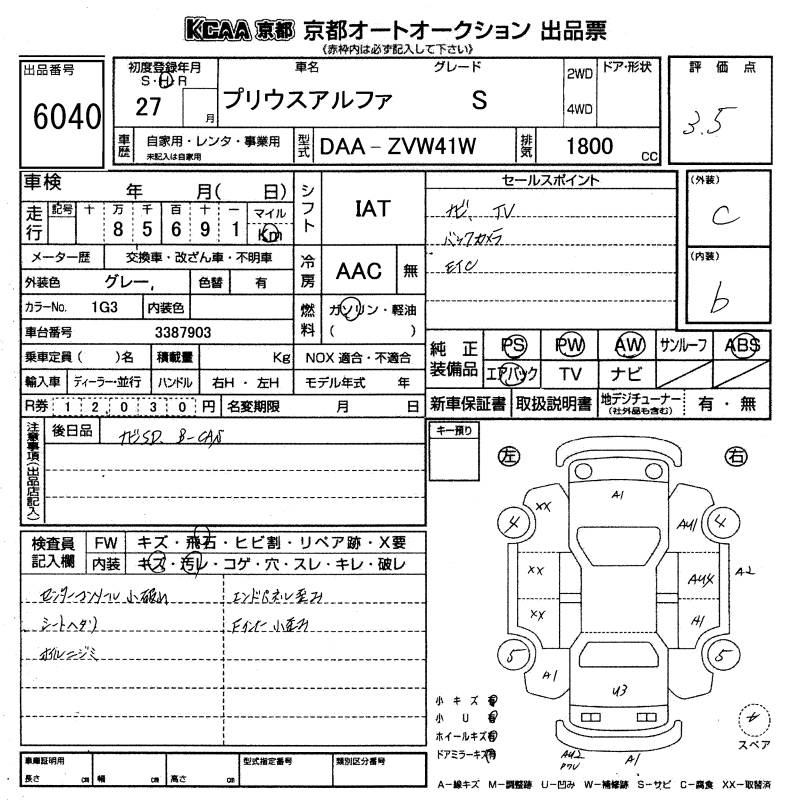 KCAA 京都 京都オートオークション 出品票
《赤枠内は必ず記入して下さい》
出品番号
6040
初度登録年月
S・H・R
27 月
車名
グレード
プリウスアルファ S
2WD
4WD
ドア・形状
評価点
3.5
車歴
自家用・レンタ・事業用
未記入は自家用
型式
DAA-ZVW41W
排気
1800 CC
車検 年 月( 日)
走行
記号 十 万 千 百 十 一 マイル
8 5 6 9 1 Km
メーター歴 交換車・改ざん車・不明車
外装色 グレー, 色替 有
カラーNo. 1G3 内装色
車台番号 3387903
乗車定員( )名 積載量 Kg NOX 適合・不適合
輸入車 ディーラー・並行 ハンドル 右H・左H モデル年式 年
R券 12,030円 名変期限 月 日
シフト
IAT
冷房
AAC 無
燃料
ガソリン・軽油
( )
セールスポイント
ナビ、TV
バックカメラ
ETC
(外装)
C
(内装)
b
純正装備品
PS PW AW サンルーフ ABS
エアバック TV ナビ
新車保証書 取扱説明書 地デジチューナー(社外品も含む) 有・無
注意事項(出品店記入)
後日品 ナビSD. B-CAS
キー預り
左
右
検査員記入欄
FW キズ・飛石・ヒビ割・リペア跡・X要
内装 キズ・汚レ・コゲ・穴・スレ・キレ・破レ
センターコンソール小破れ エンドパネル歪み
シートヘタリ Fインナー小歪み
オイルニジミ
A1
XX
4
4
AU1
XX
AU4
A2
XX
A1
5
5
A1
U3
小キズ有
小U有
ホイールキズ有
ドアミラーキズ有
AU2
A1
4
スペア
車庫証明用
長さ cm 幅 cm 高さ cm
型式指定番号
類別区分番号
A-線キズ M-調整跡 U-凹み W-補修跡 S-サビ C-腐食 XX-取替済